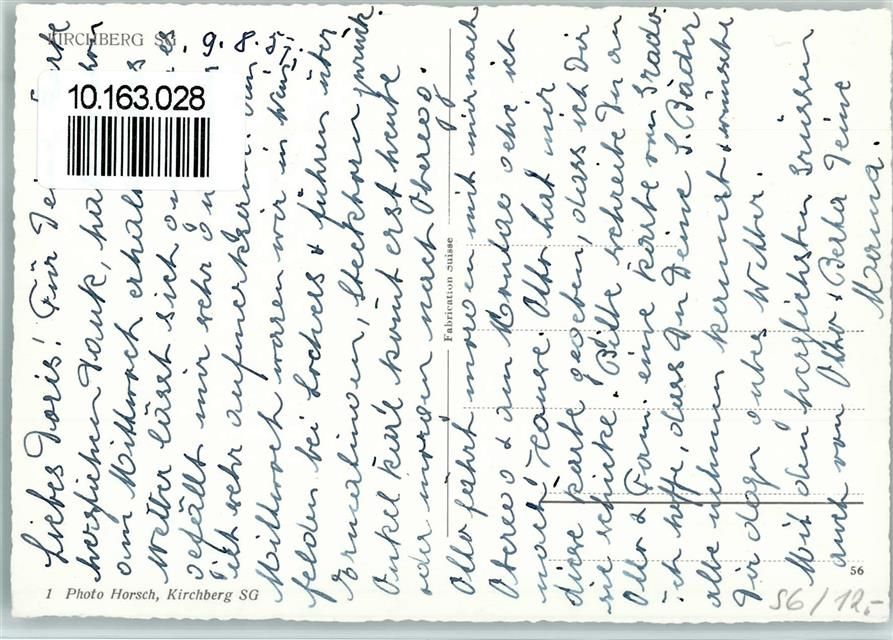 KIRCHBERG SG
9.8.57.
10.163.028
Liebes Doris! Für De
herzlichen Dank, ha
am Mittwoch erhal
Wetter lässt sich
gefällt mir sehr gu
ist sehr aufmerksam.
Mittwoch waren wir in Wein
felden bei Lochers & fuhren über
Ermatingen, Steckborn zurück.
Onkel Karl komt erst heute
oder morgen nach Oberegg.
Otto fährt morgen mit mir nach
Oberegg & am Montag gehe ich
nach Hause. Otto hat mir
diese Karte gegeben, dass ich Dir
sie schicke. Bitte schreibe Du an
Otto & Fam. eine Karte von Grado.
ich hoffe, dass Du Deine S. Bäder
alle nehmen kannst & wünsche
Dir dazu gutes Wetter.
Mit den herzlichsten Grüssen
auch von Otto & Berta Deine
Mama.
Fabrication Suisse
1 Photo Horsch, Kirchberg SG
56
S6/12,-